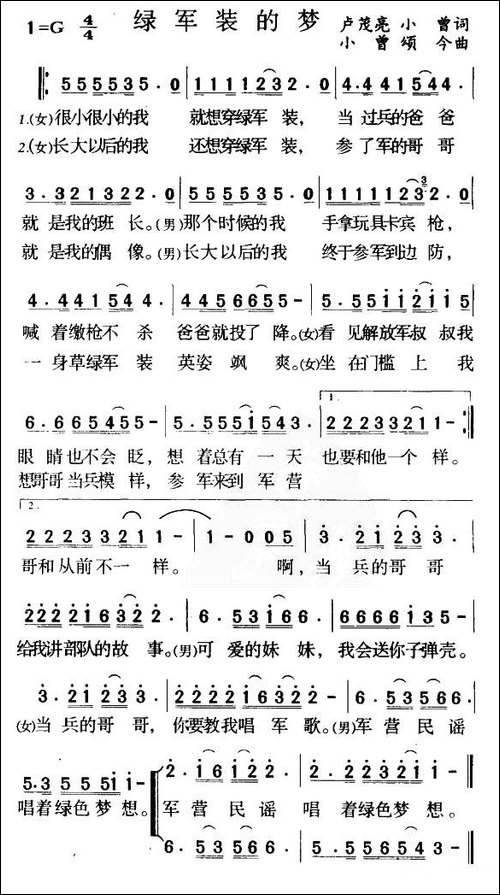 1=G 4/4 绿军装的梦 卢茂亮 小曾词
小曾 颂今曲
5 5 5 5 3 5 · 0 1 1 1 1 2 3 2 · 0 4 · 4 4 1 5 4 4 ·
1.(女)很小很小的我 就想穿绿军装, 当过兵的爸爸
2.(女)长大以后的我 还想穿绿军装, 参了军的哥哥
3 · 3 2 1 3 2 2 · 0 5 5 5 5 3 5 · 0 1 1 1 1 1 2 3 2 · 0
就是我的班长。(男)那个时候的我 手拿玩具卡宾枪,
就是我的偶像。(男)长大以后的我 终于参军到边防,
4 · 4 4 1 5 4 4 · 4 4 5 6 6 5 5 - 5 · 5 5 i i 2 i i 5
喊着缴枪不杀 爸爸就投了降。(女)看见解放军叔叔我
一身草绿军装 英姿飒爽。(女)坐在门槛上我
6 · 6 6 5 4 5 5 - 5 · 5 5 5 i 5 4 3 · 1. 2 2 2 3 3 2 1 1 -
眼睛也不会眨, 想着总有一天 也要和他一个样。
想哥哥当兵模样, 参军来到军营
2. 2 2 2 3 3 2 1 1 - 1 - 0 0 5 3 · 2 i 2 3 3 ·
哥和从前不一样。 啊, 当兵的哥哥
2 2 2 2 i 6 3 2 2 · 6 · 5 3 i 6 6 · 6 6 6 6 6 i 3 5 -
给我讲部队的故事。(男)可爱的妹妹, 我会送你子弹壳。
3 · 2 i 2 3 3 · 2 2 2 2 i 6 3 2 2 - 6 · 5 3 5 6 6 ·
(女)当兵的哥哥, 你要教我唱军歌。(男)军营民谣
5 · 3 5 5 5 i i - 2 · i 6 i 2 2 · 2 · i 2 2 i 2 i -
唱着绿色梦想。军营民谣 唱着绿色梦想。
6 · 5 3 5 6 6 · 5 · 5 5 6 5 4 3 -